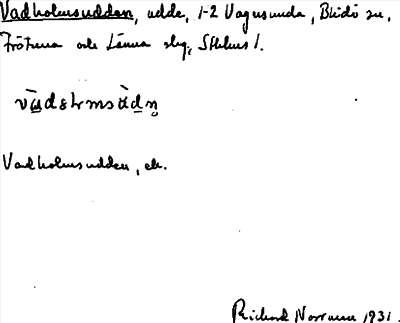 Vadholmsudden, udde, 1-2 Vagnsunda, Blidö sn,
Frötuna och Länna slg, Sthlms l.
Vadholmsudden, ek.
Richard Norrman 1931.